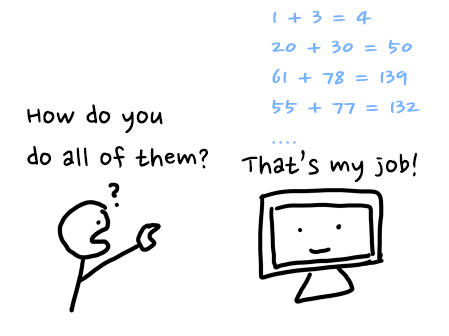 1 + 3 = 4
20 + 30 = 50
61 + 78 = 139
55 + 77 = 132
....
How do you
do all of them?
That's my job!
?